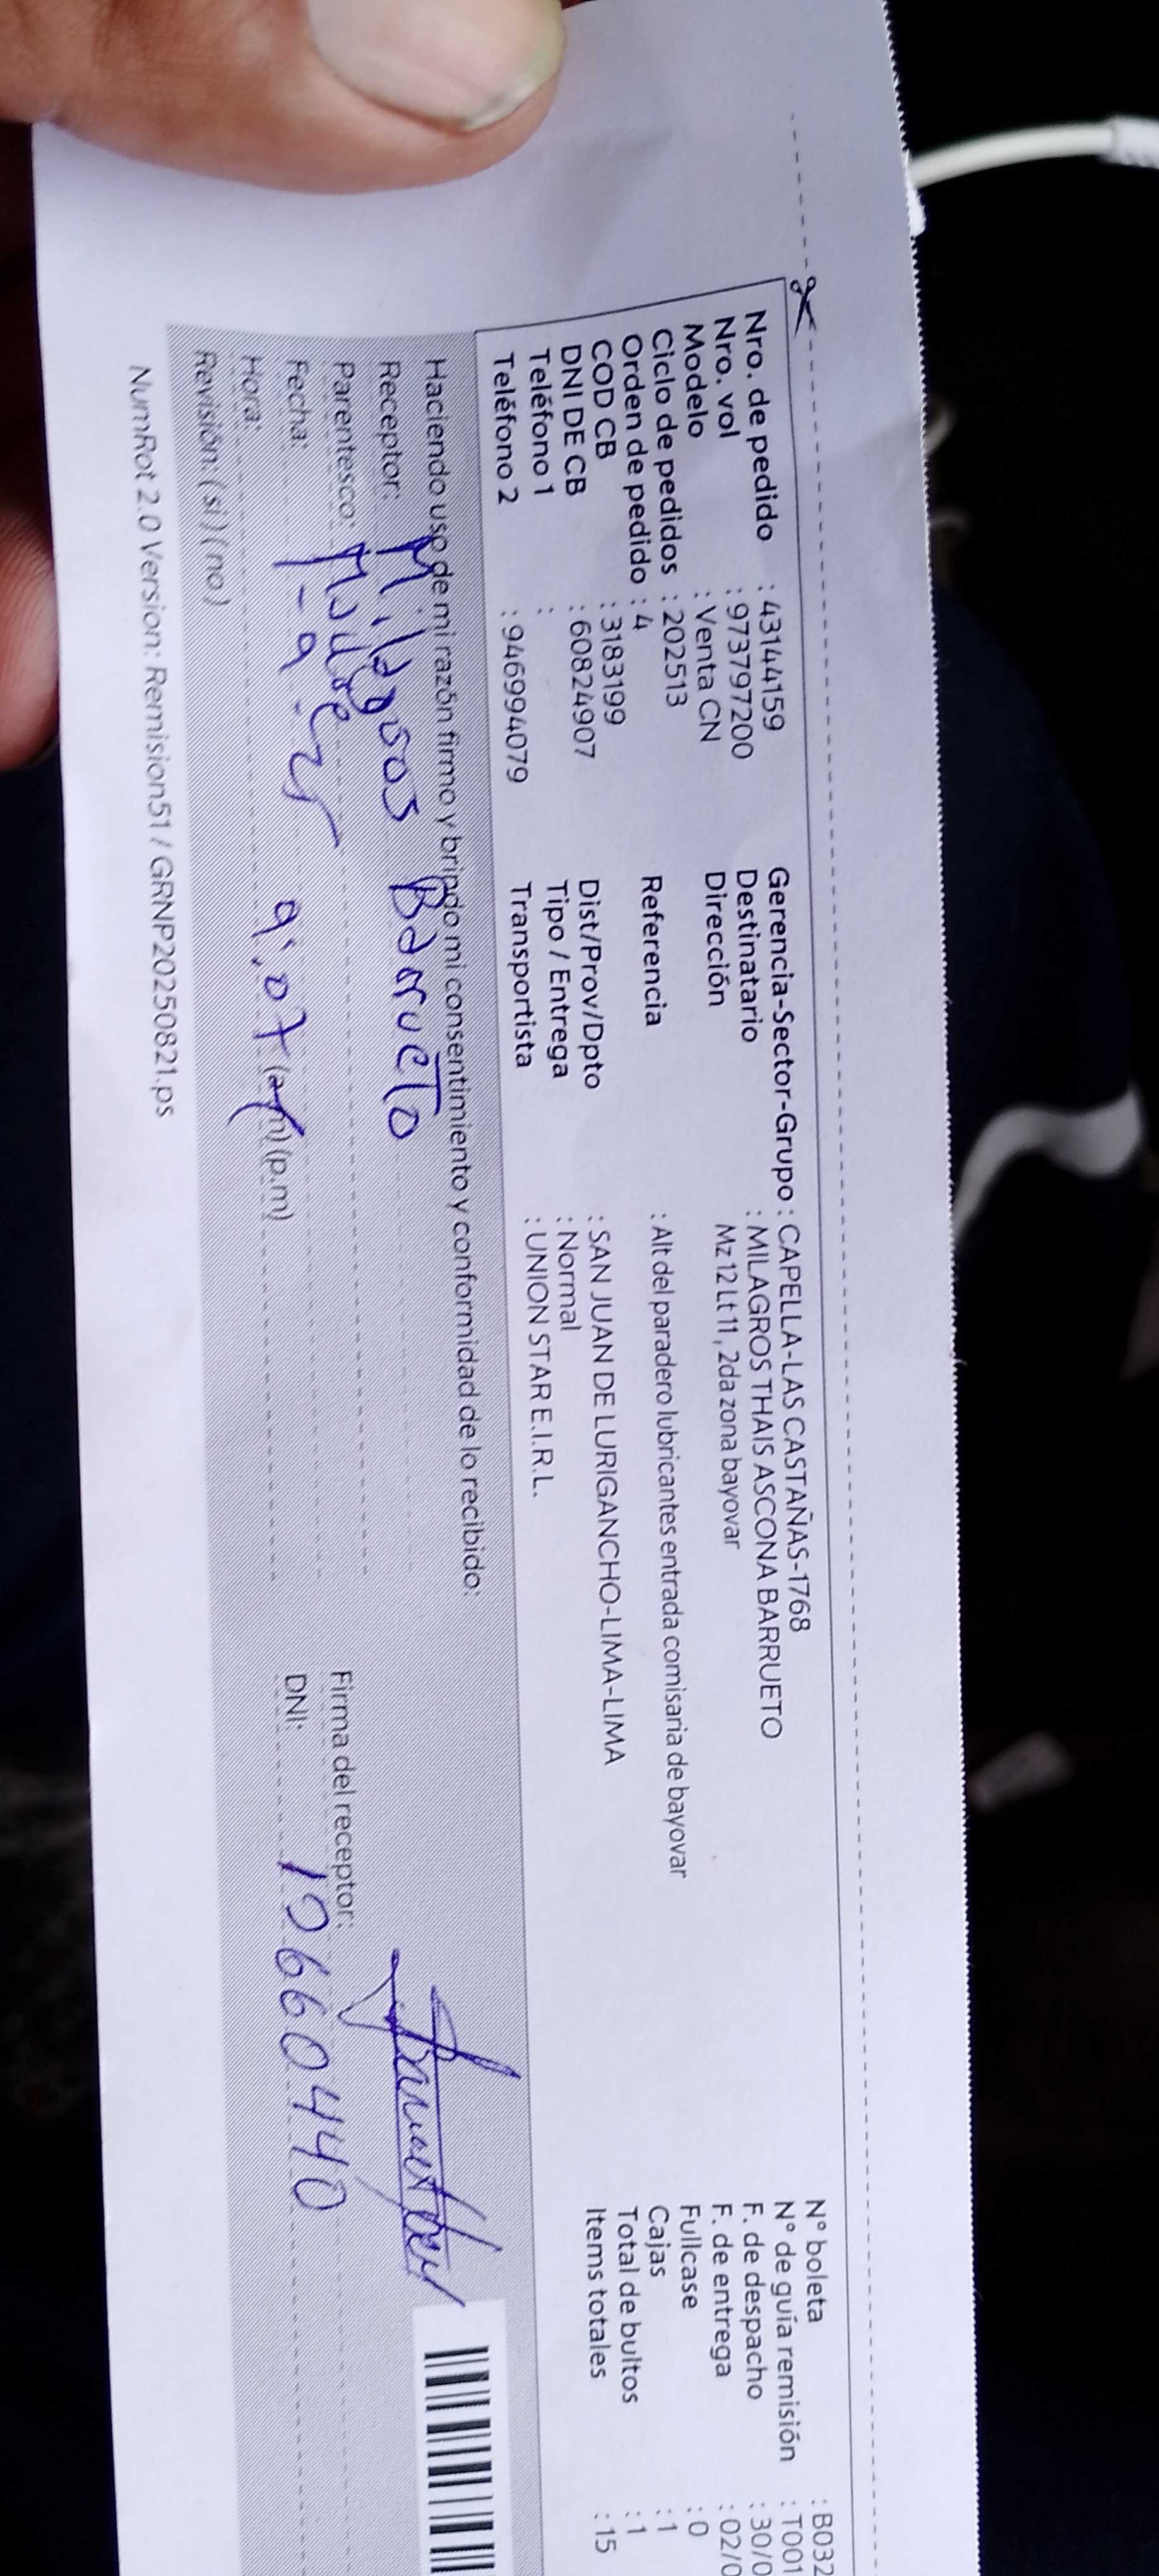 Nro. de pedido : 43144159
Nro. vol : 973797200
Modelo : Venta CN
Ciclo de pedidos : 202513
Orden de pedido : 4
COD CB : 3183199
DNI DE CB : 60824907
Teléfono 1 :
Teléfono 2 : 946994079
Gerencia-Sector-Grupo : CAPELLA-LAS CASTAÑAS-1768
Destinatario : MILAGROS THAIS ASCONA BARRUETO
Dirección Mz 12 Lt 11 , 2da zona bayovar
Referencia : Alt del paradero lubricantes entrada comisaria de bayovar
Dist/Prov/Dpto : SAN JUAN DE LURIGANCHO-LIMA-LIMA
Tipo / Entrega : Normal
Transportista : UNION STAR E.I.R.L.
N° boleta : B032
N° de guía remisión : T001
F. de despacho : 30/0
F. de entrega : 02/0
Fullcase : 0
Cajas : 1
Total de bultos : 1
Items totales : 15
Haciendo uso de mi razón firmo y brindo mi consentimiento y conformidad de lo recibido:
Receptor: Milagros Barrueto
Parentesco: Madre
Fecha:
Hora: 9:07 (a.m) (p.m)
Revisión: (si) (no)
Firma del receptor:
DNI: 19660440
NumRot 2.0 Version: Remision51 / GRNP20250821.ps